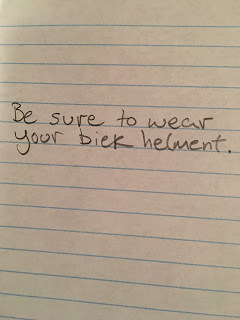 Be sure to wear
your biek helment.